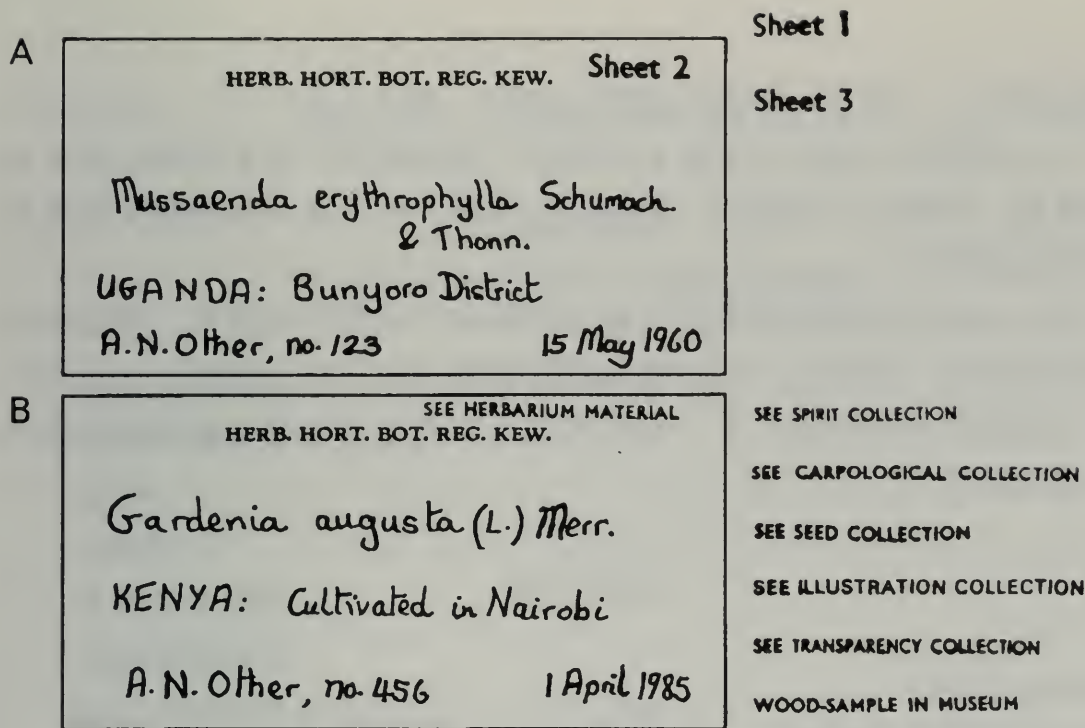 Sheet 1
A
HERB. HORT. BOT. REG. KEW. Sheet 2
Sheet 3
Mussaenda erythrophylla Schumach.
& Thonn.
UGANDA: Bunyoro District
A.N. Other, no. 123 15 May 1960
B
SEE HERBARIUM MATERIAL
HERB. HORT. BOT. REG. KEW.
Gardenia augusta (L.) Merr.
KENYA: Cultivated in Nairobi
A.N. Other, no. 456 1 April 1985
SEE SPIRIT COLLECTION
SEE CARPOLOGICAL COLLECTION
SEE SEED COLLECTION
SEE ILLUSTRATION COLLECTION
SEE TRANSPARENCY COLLECTION
WOOD-SAMPLE IN MUSEUM